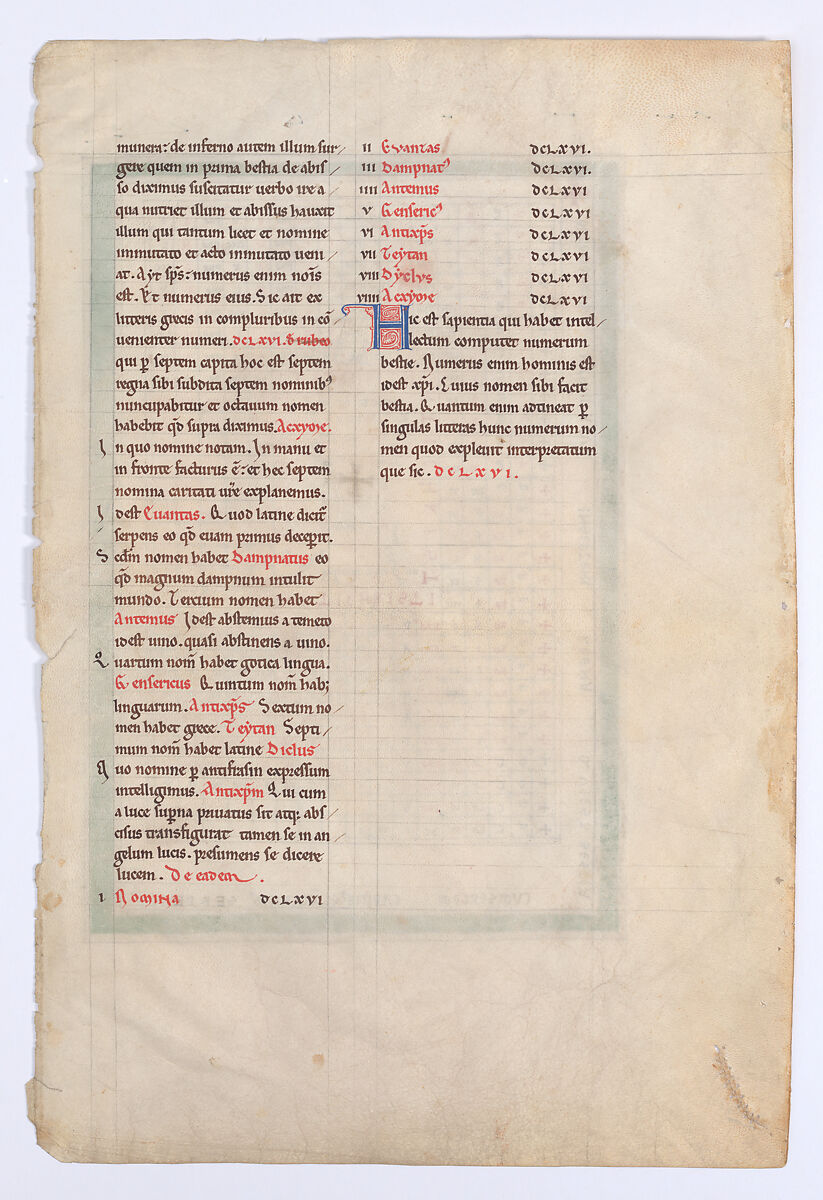 munera: de inferno autem illum sur
gere quem in prima bestia de abis
so diximus suscitatur uerbo ire a
qua nutriet illum et abissus hauxit
illum qui tantum licet et nomine
immutato et acto inmutato ueni
at. Ayt sp̅s: numerus enim nois̅
est. Et numerus eius. Sic ait ex
litteris grecis in compluribus in co̅
uenienter numeri. dclxvi.
qui p̲ septem capita hoc est septem
regna sibi subdita septem nominib⁹
nuncupabitur et octauum nomen
habebit qd̅ supra diximus. Acxyme.
In quo nomine notam. In manu et
in fronte facturus e̅: et hec septem
nomina caritati ur̅e explanemus.
Idest Euantas. Quod latine dicit̅
serpens eo qd̅ euam primus decepit.
Scdm̅ nomen habet Dampnatus eo
qd̅ magnum dampnum intulit
mundo. Tercium nomen habet
Antemus Idest abstemius a temeto
idest uino. quasi abstinens a uino.
Quartum nom̅ habet gotica lingua.
Gensericus Quintum nom̅ hab;
linguarum. Antixp̅s Sextum no
men habet grece. Teytan Septi
mum nom̅ habet latine Diclus
Quo nomine p̲ antifrasin expressum
intelligimus. Antixp̅m Qui cum
a luce sup̲na priuatus sit atq; abs
cisus transfigurat tamen se in an
gelum lucis. presumens se dicere
lucem. De eadem.
I NOMINA DCLXVI
II Evantas DCLXVI.
III Dampnat⁹ DCLXVI.
IIII Antemus DCLXVI
V Genseric⁹ DCLXVI
VI Antixp̅s DCLXVI
VII Teytan DCLXVI
VIII Dyclvs DCLXVI
VIIII Acxyme DCLXVI
Hic est sapientia qui habet intel
lectum computet numerum
bestie. Numerus enim hominis est
idest xp̅i. Cuius nomen sibi facit
bestia. Quantum enim adtineat p̲
singulas litteras hunc numerum no
men quod expleuit interpretatum
que sic. DCLXVI.